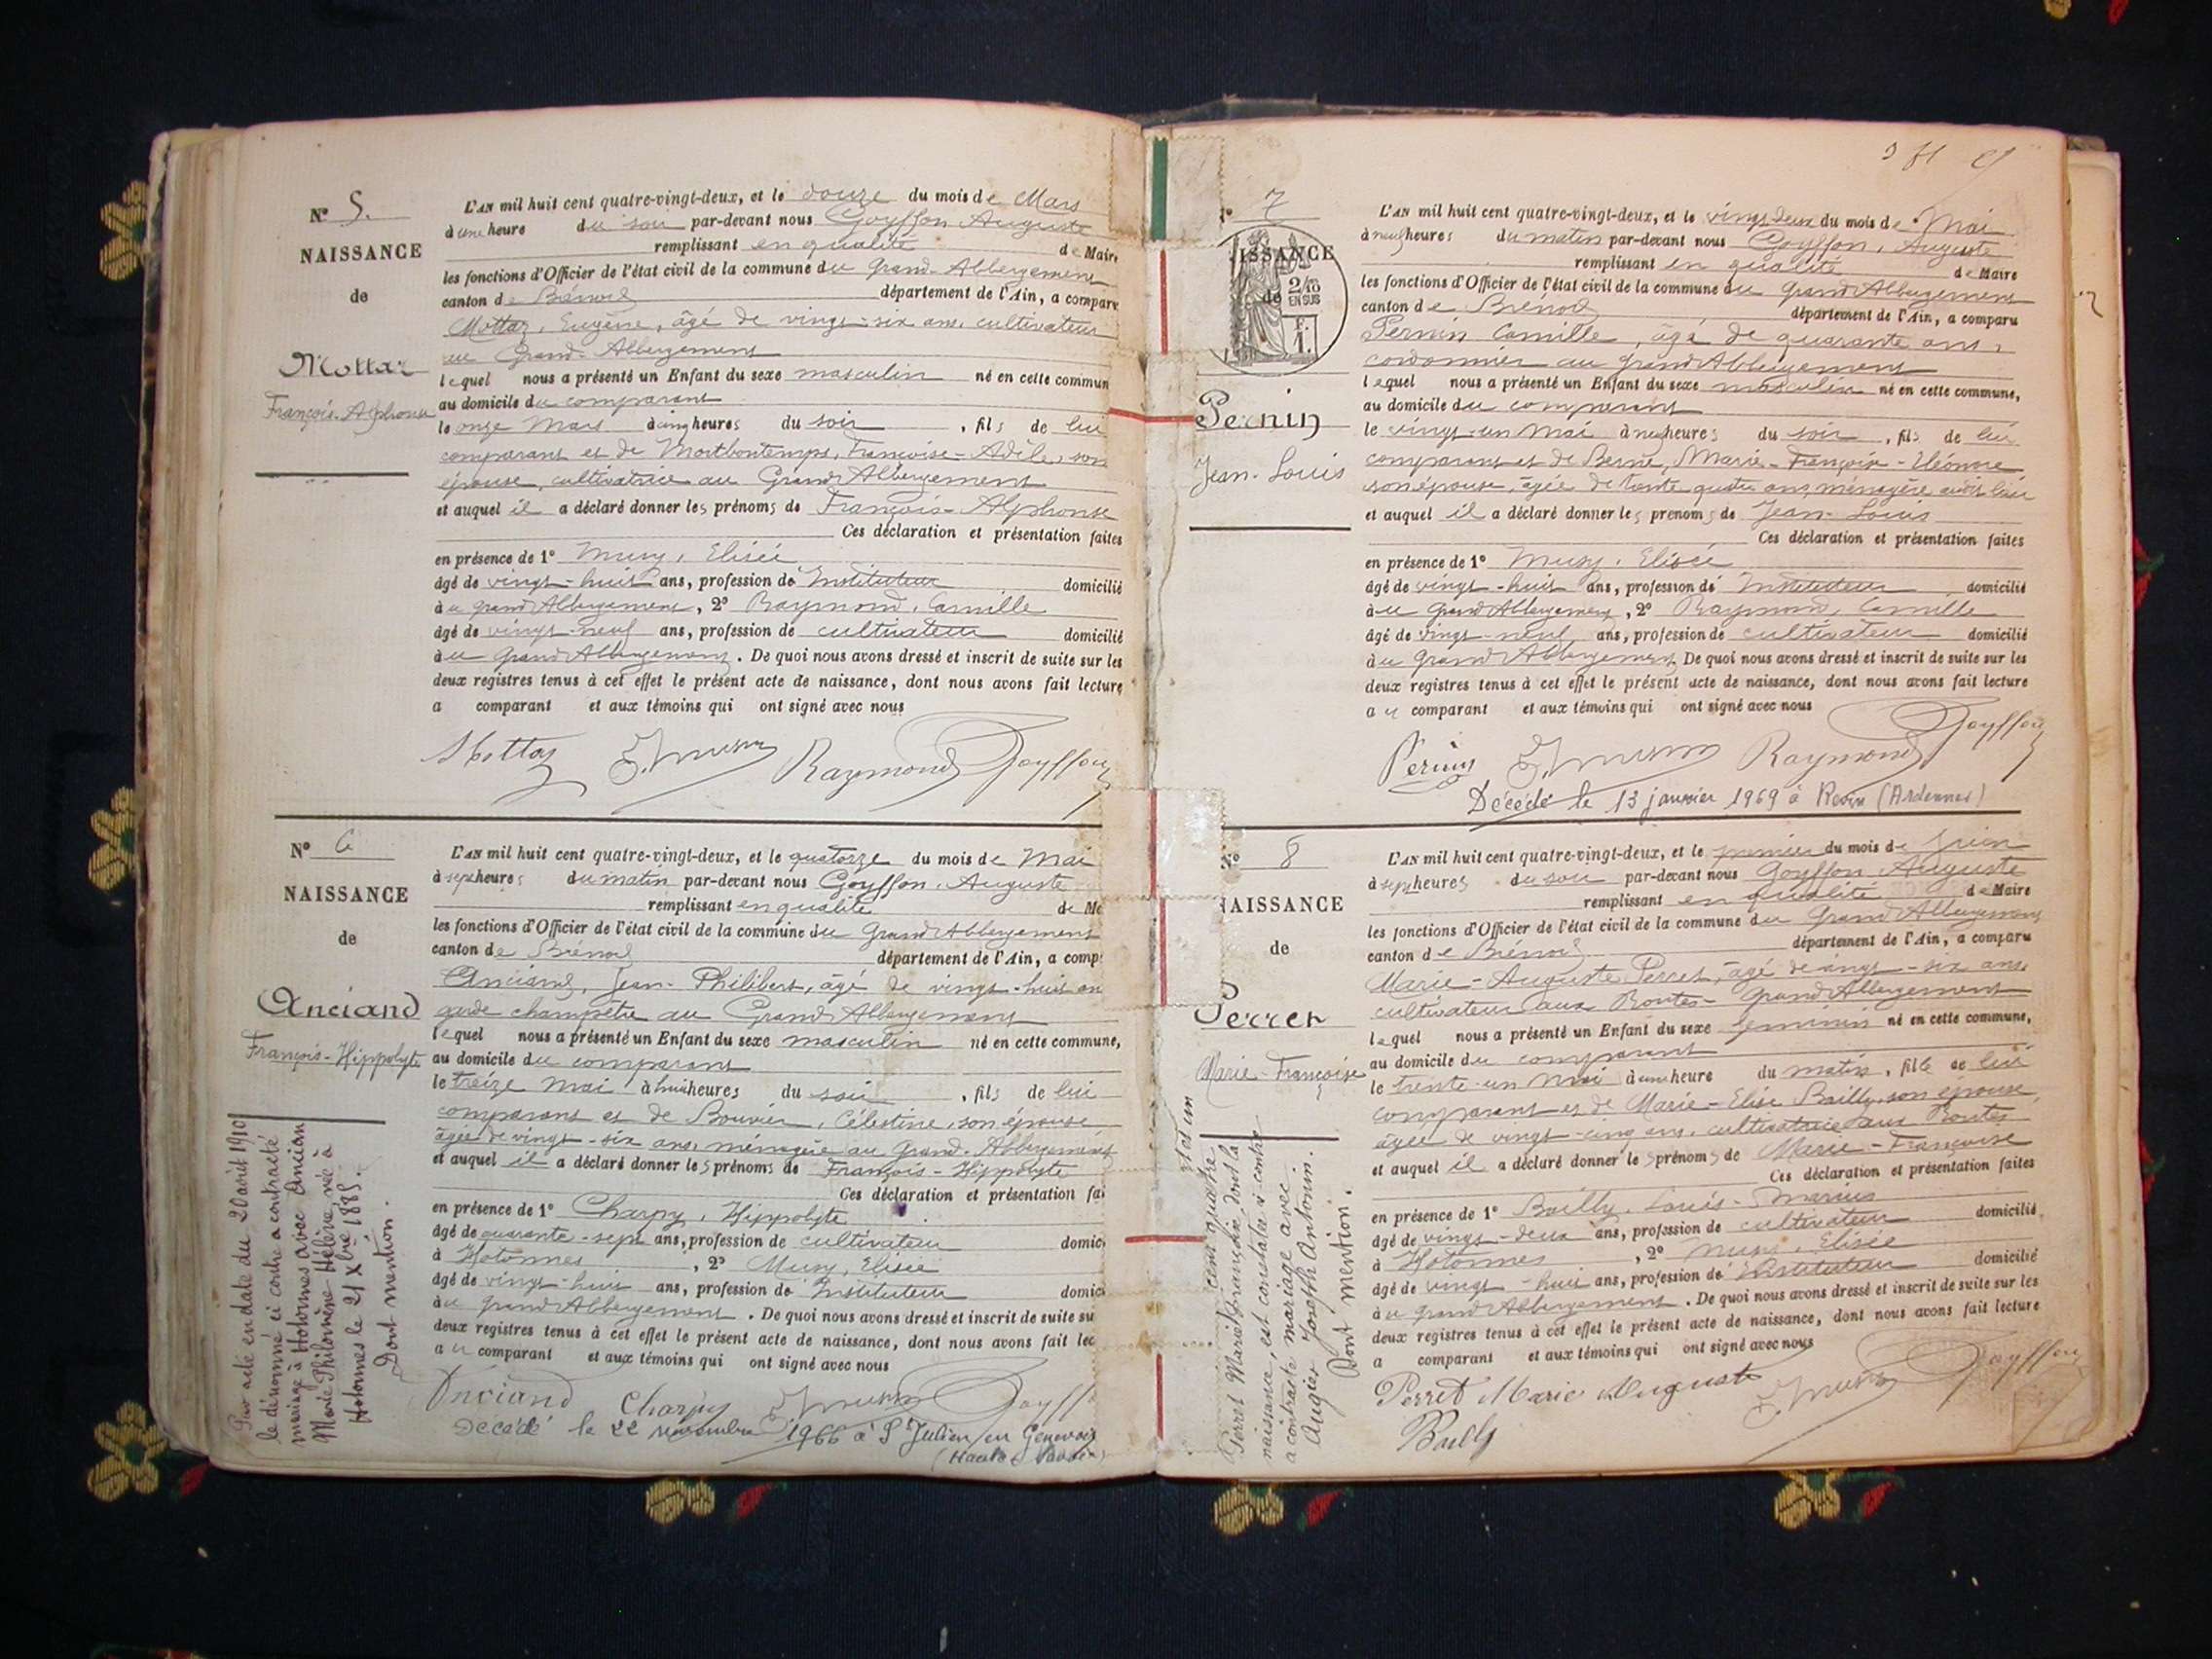 N° 5.
NAISSANCE
de
Mottaz
François-Alphonse
L'AN mil huit cent quatre-vingt-deux, et le douze du mois de Mars
à une heure du soir par-devant nous Goyffon Auguste
remplissant en qualité de Maire
les fonctions d'Officier de l'état civil de la commune du Grand-Abbergement
canton de Brénod département de l'Ain, a comparu
Mottaz, Eugène, âgé de vingt-six ans, cultivateur
au Grand-Abbergement
lequel nous a présenté un Enfant du sexe masculin né en cette commun
au domicile du comparant
le onze Mars à cinq heures du soir, fils de lui
comparant et de Montbontemps, Françoise-Adèle, son
épouse, cultivatrice au Grand Abbergement
et auquel il a déclaré donner les prénoms de François-Alphonse
Ces déclaration et présentation faites
en présence de 1° Musy, Elisée
âgé de vingt-huit ans, profession de Instituteur domicilié
à u Grand Abbergement, 2° Raymond, Camille
âgé de vingt-neuf ans, profession de cultivateur domicilié
à u Grand Abbergement. De quoi nous avons dressé et inscrit de suite sur les
deux registres tenus à cet effet le présent acte de naissance, dont nous avons fait lecture
a comparant et aux témoins qui ont signé avec nous
Mottaz E. Musy Raymond Goyffon
N° 6
NAISSANCE
de
Anciand
François-Hippolyte
Par acte en date du 20 avril 1910
le dénommé ci contre a contracté
mariage à Hotonnes avec Ancian
Marie Philomène Hélène, née à
Hotonnes le 21 Xbre 1885.
Dont mention.
L'AN mil huit cent quatre-vingt-deux, et le quatorze du mois de Mai
à sept heures du matin par-devant nous Goyffon, Auguste
remplissant en qualité de Ma
les fonctions d'Officier de l'état civil de la commune du Grand Abbergement
canton de Brénod département de l'Ain, a comp
Anciand, Jean-Philibert, âgé de vingt-huit an
garde champêtre au Grand Abbergement
lequel nous a présenté un Enfant du sexe masculin né en cette commune,
au domicile du comparant
le treize mai à huit heures du soir, fils de lui
comparant et de Bouvier, Célestine, son épouse
âgée de vingt-six ans, ménagère au Grand-Abbergement
et auquel il a déclaré donner les prénoms de François-Hippolyte
Ces déclaration et présentation fai
en présence de 1° Charpy, Hippolyte
âgé de quarante-sept ans, profession de cultivateur domic
à Hotonnes, 2° Musy, Elisée
âgé de vingt-huit ans, profession de Instituteur domici
à u Grand Abbergement. De quoi nous avons dressé et inscrit de suite su
deux registres tenus à cet effet le présent acte de naissance, dont nous avons fait lec
a u comparant et aux témoins qui ont signé avec nous
Anciand Charpy E. Musy Goyff
Décédé le 22 novembre 1966 à St Julien en Genevois
(Haute Savoie)
7
ISSANCE
de
2/10
EN SUS
F.
1.
Pernin
Jean-Louis
L'AN mil huit cent quatre-vingt-deux, et le vingt deux du mois de Mai
à neuf heures du matin par-devant nous Goyffon, Auguste
remplissant en qualité de Maire
les fonctions d'Officier de l'état civil de la commune du Grand Abbergement
canton de Brénod département de l'Ain, a comparu
Pernin Camille, âgé de quarante ans,
cordonnier au Grand Abbergement
lequel nous a présenté un Enfant du sexe masculin né en cette commune,
au domicile du comparant
le vingt-un Mai à neuf heures du soir, fils de lui
comparant et de Berne, Marie-Françoise-Eléonore
son épouse, âgée de trente quatre ans, ménagère audit lieu
et auquel il a déclaré donner les prénoms de Jean-Louis
Ces déclaration et présentation faites
en présence de 1° Musy, Elisée
âgé de vingt-huit ans, profession de Instituteur domicilié
à u Grand Abbergement, 2° Raymond, Camille
âgé de vingt-neuf ans, profession de cultivateur domicilié
à u Grand Abbergement. De quoi nous avons dressé et inscrit de suite sur les
deux registres tenus à cet effet le présent acte de naissance, dont nous avons fait lecture
a u comparant et aux témoins qui ont signé avec nous
Pernin E. Musy Raymond Goyffon
Décédé le 13 janvier 1969 à Revin (Ardennes)
N° 8
NAISSANCE
de
Perret
Marie-Françoise
Perret Marie Françoise, dont la
naissance, est constatée ci contre
a contracté mariage avec
Augier Joseph Antonin.
Dont mention.
L'AN mil huit cent quatre-vingt-deux, et le premier du mois de Juin
à sept heures du soir par-devant nous Goyffon Auguste
remplissant en qualité de Maire
les fonctions d'Officier de l'état civil de la commune du Grand Abbergement
canton de Brénod département de l'Ain, a comparu
Marie-Auguste Perret, âgé de vingt-six ans,
cultivateur aux Routes-Grand Abbergement
lequel nous a présenté un Enfant du sexe féminin né en cette commune,
au domicile du comparant
le trente-un Mai à une heure du matin, fille de lui
comparant et de Marie-Elise Bailly, son épouse,
âgée de vingt-cinq ans, cultivatrice aux Routes
et auquel il a déclaré donner les prénoms de Marie-Françoise
Ces déclaration et présentation faites
en présence de 1° Bailly, Louis-Marius
âgé de vingt-deux ans, profession de cultivateur domicilié
à Hotonnes, 2° Musy, Elisée
âgé de vingt-huit ans, profession de Instituteur domicilié
à u Grand Abbergement. De quoi nous avons dressé et inscrit de suite sur les
deux registres tenus à cet effet le présent acte de naissance, dont nous avons fait lecture
a comparant et aux témoins qui ont signé avec nous
Perret Marie Auguste E. Musy Goyffon
Bailly